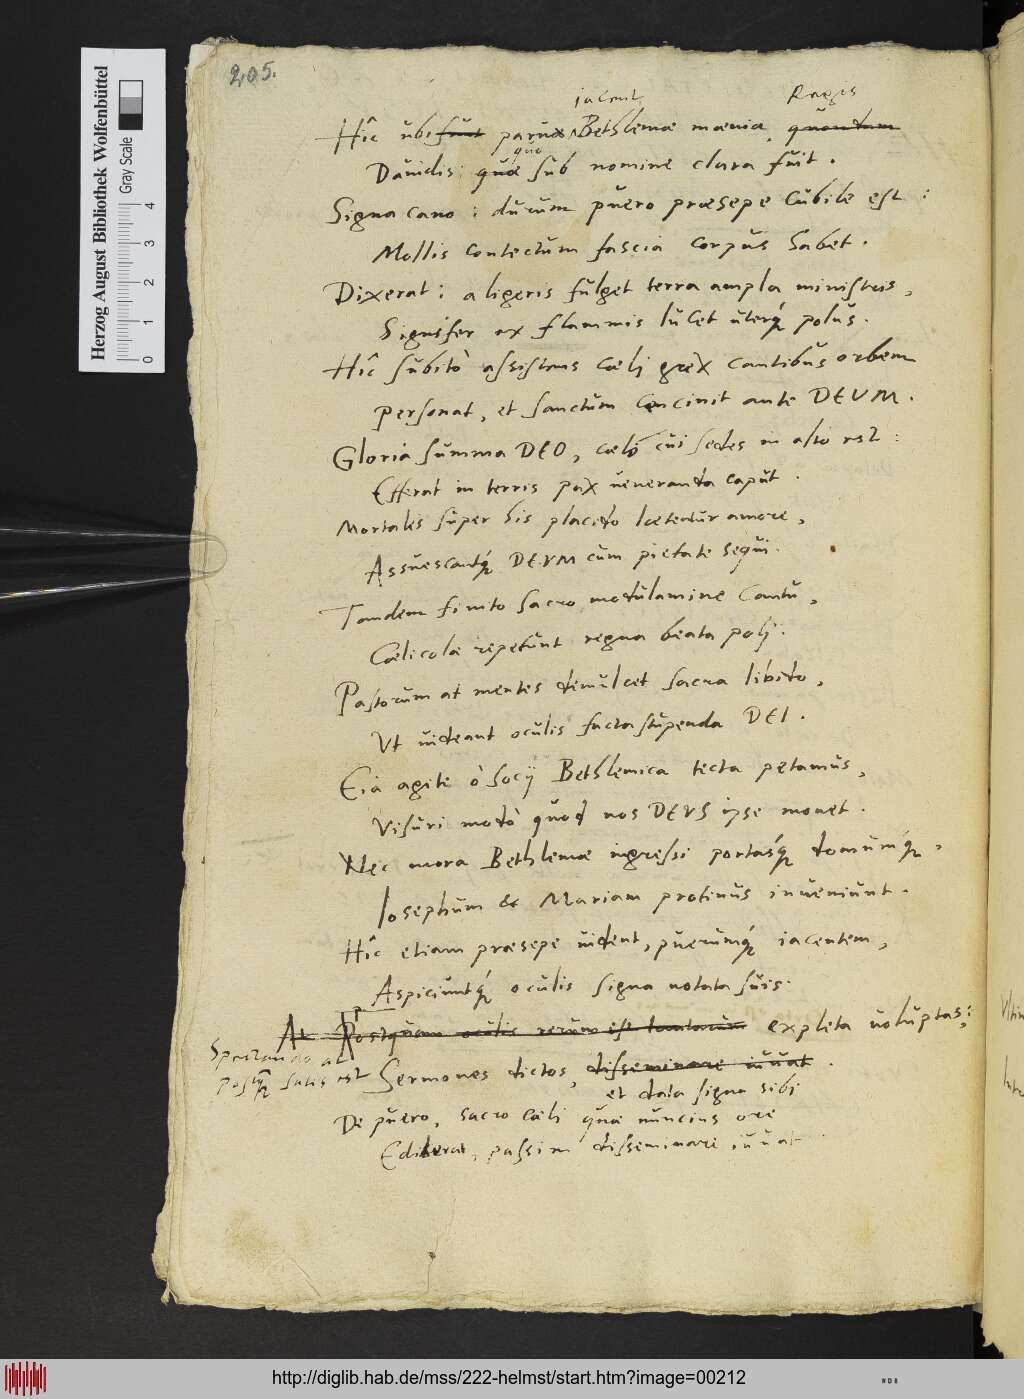 205.
iacent Regis
Hîc ubi sunt paruæ Bethlemæ mœnia, quondam
quo
Dauidis quæ sub nomine clara fuit.
Signa cano: durum puero præsepe cubile est:
Mollis contectum fascia corpus habet.
Dixerat: aligeris fulget terra ampla ministris,
Signifer ex flammis lucet uterq́ polus.
Hîc subitò assistens cœli grex cantibus orbem
Personat, et sanctum concinit ante DEVM.
Gloria summa DEO, cœlo cui sedes in alto est:
Efferat in terris pax ueneranda caput.
Mortales super his placido lætentur amore,
Assuescantq́ DEVM cum pietate sequi.
Tandem finito sacro modulamine cantu,
Cœlicolæ repetunt regna beata polj.
Pastorum at mentes demulcet sacra libido,
Vt uideant oculis facta stupenda DEI.
Eia agite ò socij Bethlemica tecta petamus,
Visuri modò quod nos DEVS ipse monet.
Nec mora Bethlemæ ingressi portasq́ domumq́,
Iosephum & Mariam protinus inueniunt.
Hîc etiam præsepe uident, puerumq́ iacentem,
Aspiciuntq́ oculis signa notata suis.
At Postquam oculis rerum est tantarum expleta uoluptas:
Spectando at
postq̃ satis est
Sermones dictos, disseminare iuuat.
et data signa sibj
De puero, sacro cœli quæ nuncius ore
Ediderat, passim disseminare iuuat.
Herzog August Bibliothek Wolfenbüttel
Gray Scale
0 1 2 3 4
http://diglib.hab.de/mss/222-helmst/start.htm?image=00212